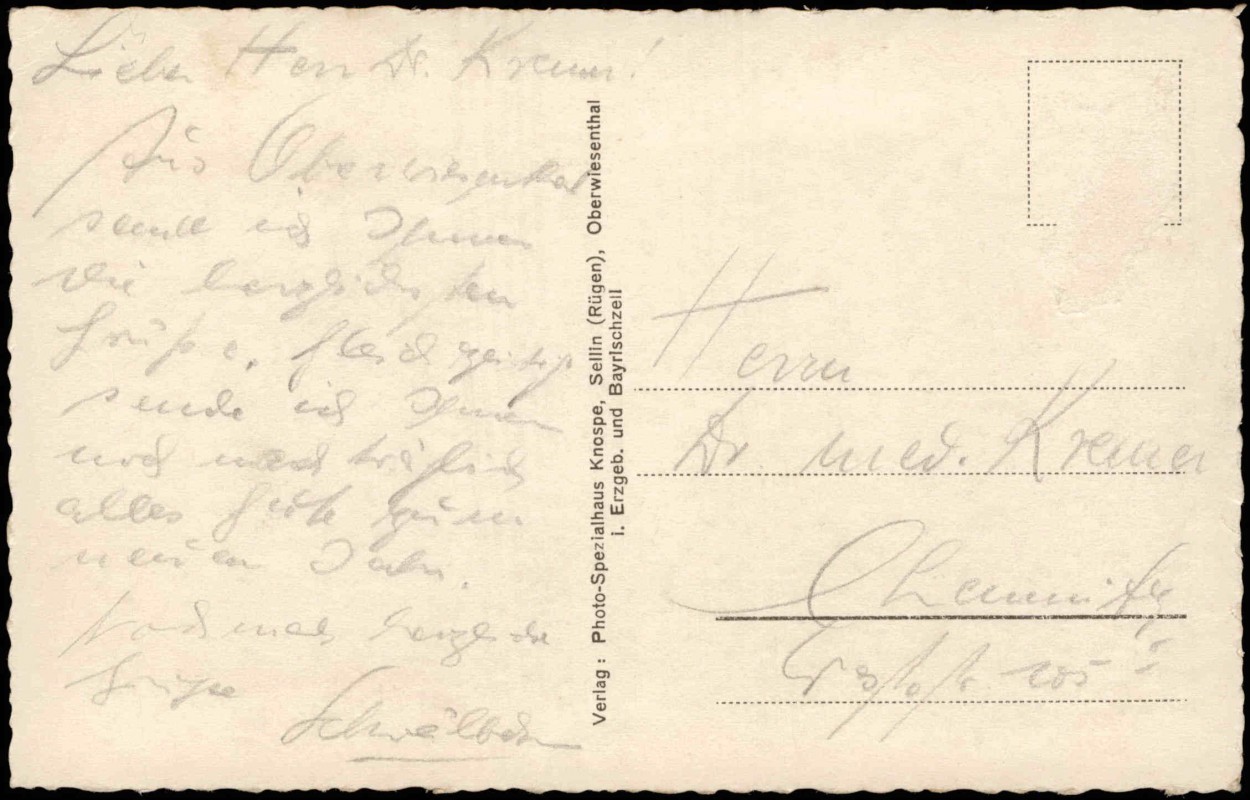 Lieber Herr Dr. Kremer!
Aus Oberwiesenthal
sende ich Ihnen
die herzlichsten
Grüße. Gleichzeitig
sende ich Ihnen
noch nachträglich
alles Gute zum
neuen Jahr.
Nochmals herzliche
Grüße
Verlag: Photo-Spezialhaus Knospe, Sellin (Rügen), Oberwiesenthal
i. Erzgeb. und Bayrischzell
Herrn
Dr. med. Kremer
Chemnitz
105